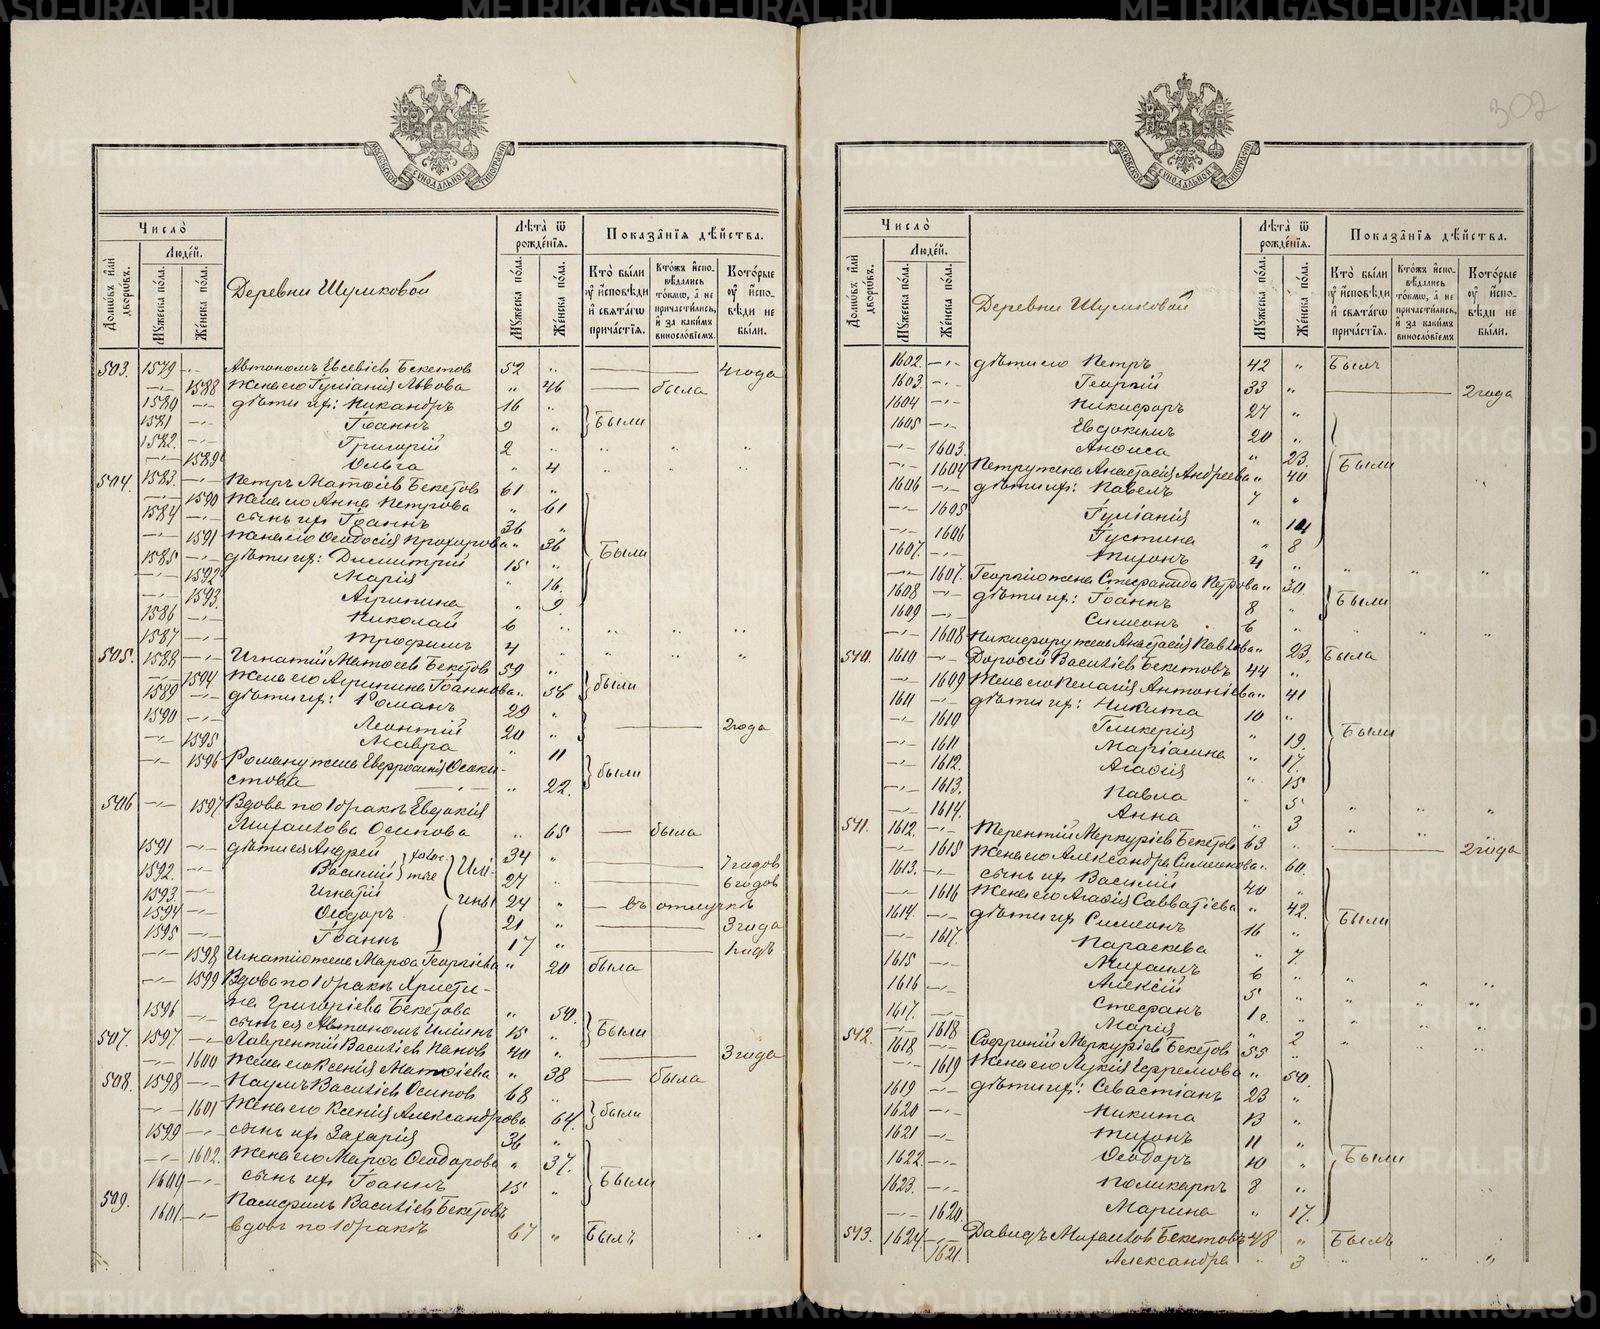 МОСКОВСКОЙ СѴНОДАЛЬНОЙ ТИПОГРАФІИ
Число̀
Домѡ́въ и҆лѝ дворѡ́въ.
Люде́й.
Мꙋ́жеска по́ла.
Же́нска по́ла.
Деревни Шумковой
Лѣ̑та ѿ рожде́нїѧ.
Мꙋ́жеска по́ла.
Же́нска по́ла.
Показа̑нїѧ дѣ́йства.
Кто̀ бы́ли ᲂу҆ и҆́сповѣди и҆ свѧта́гѡ прича́стїѧ.
Кто́жъ и҆спо-вѣ́дались то́кмѡ, а҆ не причасти́лись, и҆ за каки́мъ винослѡ́вїемъ.
Кото́рые ᲂу҆ и҆спо-вѣди не бы́ли.
503. 1579 -"- Автономъ Евсевіев Бекетов 52 " 4 года
-"- 1588 Жена его Іуліанія Львова " 46 была
1580 -"- дѣти их: Никандръ 16 "
1581 -"- Іоаннъ 9 " Были
1582. -"- Григорій 2 " " " "
-"- 1589 Ольга " 4 " " "
504. 1583. -"- Петръ Матѳіев Бекетов 61 "
-"- 1590 Жена его Анна Петрова " 61
1584 -"- сынъ их Іоаннъ 36 "
-"- 1591 Жена его Ѳеодосія Прохорова " 36 Были
1585. -"- дѣти их: Димитрій 15 "
-"- 1592 Марія " 16.
-"- 1593. Агрипина " 9
1586 -"- Николай 6 " " " "
1587 -"- Трофимъ 4 " " " "
505. 1588 -"- Игнатій Матѳіев Бекетов 59 "
-"- 1594 Жена его Агрипина Іоаннова " 56 были
1589 -"- дѣти их: Романъ 29 "
1590 -"- Леонтій 20 " 2 года
-"- 1595 Мавра " 11
-"- 1596 Роману жена Евфросинія Ѳеоки-
стова " 22. были
506 -"- 1597 Вдова по 1 бракѣ Евдокія
Михаилова Осипова " 65 была
1591 -"- дѣти ея Андрей 34 " 7 годов
1592. -"- Василій 27 " 6 годов
1593. Игнатій 24 " въ отлучкѣ
1594 -"- Ѳеодоръ 21 " 3 года
1595 -"- Іоаннъ 17 " 1 годъ
-"- 1598 Игнатію жена Марѳа Георгіева " 20 была
-"- 1599 Вдова по 1 бракѣ Христи-
на Григоріева Бекетова " 50.
1596 -"- сынъ ея Автономъ Илiинъ 15 " Были
507. 1597 -"- Лаврентій Василіев Панов 40 " 3 года
-"- 1600 Жена его Ксенія Матѳіева " 38 была
508. 1598 -"- Наумъ Василіев Осипов 68 "
-"- 1601 Жена его Ксенія Александрова 64. были
1599 -"- сынъ их Захарія 36 "
-"- 1602. Жена его Марѳа Ѳеодорова " 37.
1600 -"- сынъ их Іоаннъ 15 " Были
509. 1601 -"- Памфилъ Василіев Бекетовъ
вдовъ по 1 бракѣ 67 " Былъ
307
МОСКОВСКОЙ СѴНОДАЛЬНОЙ ТИПОГРАФІИ
Число̀
Домѡ́въ и҆лѝ дворѡ́въ.
Люде́й.
Мꙋ́жеска по́ла.
Же́нска по́ла.
Деревни Шумковой
Лѣ̑та ѿ рожде́нїѧ.
Мꙋ́жеска по́ла.
Же́нска по́ла.
Показа̑нїѧ дѣ́йства.
Кто̀ бы́ли ᲂу҆ и҆́сповѣди и҆ свѧта́гѡ прича́стїѧ.
Кто́жъ и҆спо-вѣ́дались то́кмѡ, а҆ не причасти́лись, и҆ за каки́мъ винослѡ́вїемъ.
Кото́рые ᲂу҆ и҆спо-вѣди не бы́ли.
1602. -"- дѣти его Петръ 42 " Былъ
1603. -"- Георгій 33 " 2 года
1604 -"- Никифоръ 27 "
1605 -"- Евдокимъ 20 "
-"- 1603. Анѳиса " 23. Были
-"- 1604 Петру жена Анастасія Андреева " 40
1606 -"- дѣти их: Павелъ 7 "
-"- 1605 Іуліанія " 14
-"- 1606 Іустина " 8
1607. -"- Тихонъ 4 " " " "
-"- 1607. Георгію жена Стефанида Петрова " 30.
1608 -"- дѣти их: Іоаннъ 8 " Были
1609 -"- Симеонъ 6 " " " "
-"- 1608 Никифору жена Анастасія Павлова " 23. Была
510. 1610 -"- Дороѳей Василіев Бекетовъ 44 "
-"- 1609 Жена его Пелагія Антоніева " 41
1611 -"- дѣти их: Никита 10 "
-"- 1610 Гликерія " 19. Были
-"- 1611 Маріамна " 17.
-"- 1612. Агаѳія " 15
-"- 1613. Павла " 5 " " "
-"- 1614. Анна " 3 " "
511. 1612. -"- Терентій Меркуріев Бекетов 63 " 2 года
-"- 1615 Жена его Александра Симеонова " 60.
1613. -"- сынъ их Василій 40 "
-"- 1616 Жена его Агаѳія Савватіева " 42.
1614. -"- дѣти их Симеонъ 16 " Были
-"- 1617. Параскева " 7.
1615 -"- Михаилъ 6 " " "
1616 -"- Алексій 5 " " " "
1617. -"- Стефанъ 1 г. " " "
-"- 1618 Марія " 2 " " "
512. 1618 -"- Софроній Меркуріев Бекетов 55 "
-"- 1619 Жена его Лукія Ефремова " 50.
1619 -"- дѣти их: Севастіанъ 23 "
1620 -"- Никита 13 "
1621 -"- Тихонъ 11 "
1622. -"- Ѳеодоръ 10 " Были
1623. -"- Поликарпъ 8 "
-"- 1620. Марина " 17.
513. 1624 -"- Давидъ Михаилов Бекетовъ 48 " Былъ
1621. Александра " 3 " " "
METRIKI.GASO-URAL.RU